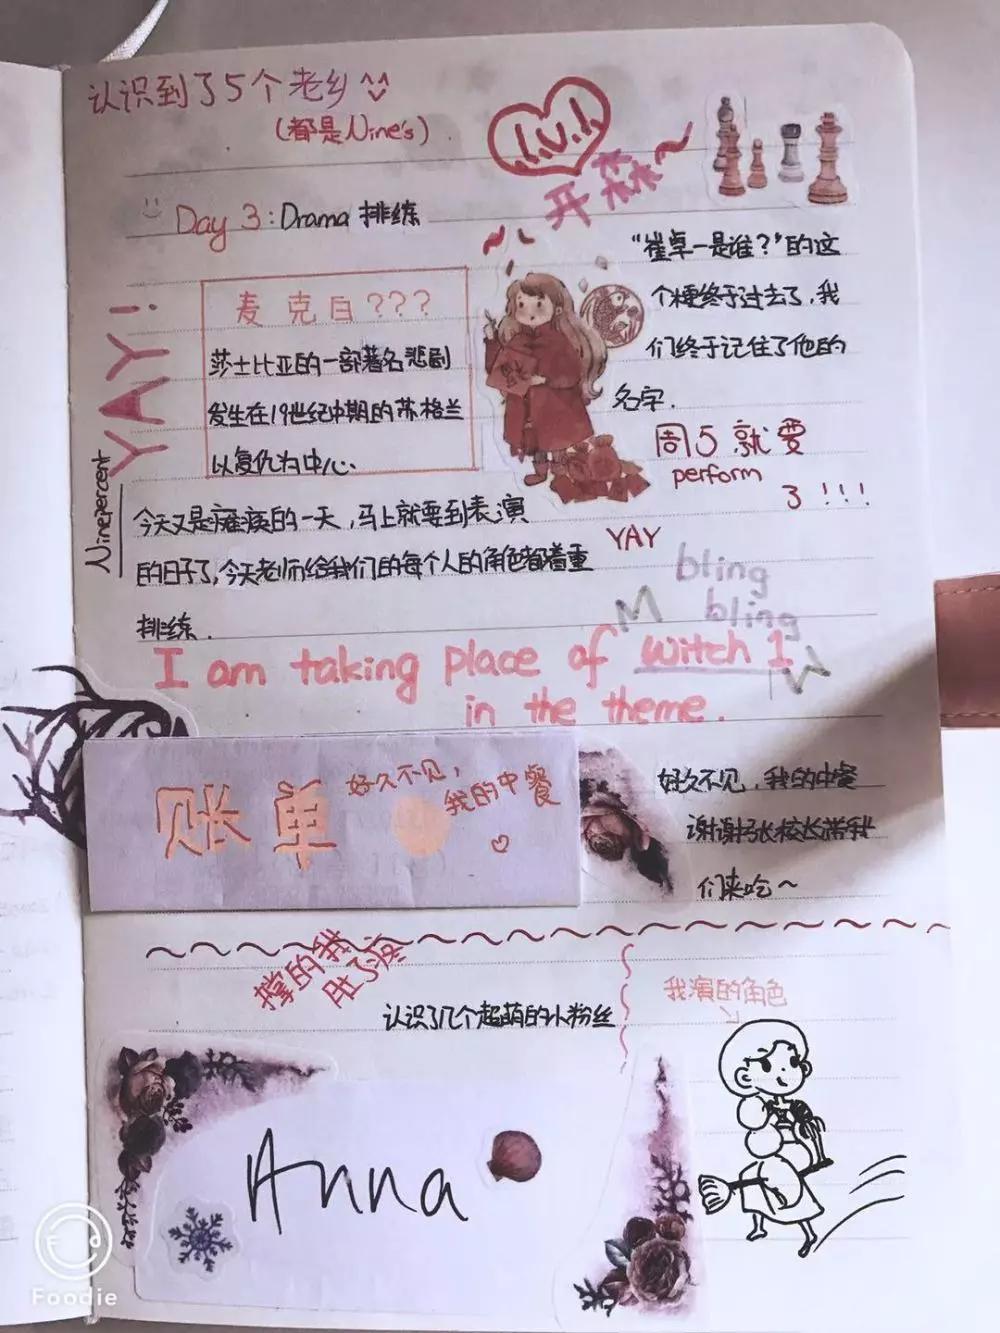 认识到了5个老乡^^
(都是Nine's)
l.u.l.
开森~
Day 3: Drama 排练
YAY!
麦克白???
莎士比亚的一部著名悲剧
发生在19世纪中期的苏格兰
以复仇为中心、
"崔卓一是谁?"的这
个梗终于过去了,我
们终于记住了他的
名字.
周5就要
perform
3!!!
YAY
Ninepercent
今天又是瘫痪的一天,马上就要到表演
的日子了,今天老师给我们的每个人的角色都着重
排练.
bling
bling
I am taking place of witch 1
in the theme.
账单
好久不见,
我的中餐
好久不见,我的中餐
谢谢张校长带我
们来吃~
撑的我
肚子疼
认识了几个超萌的小粉丝
我演的角色
Anna
Foodie